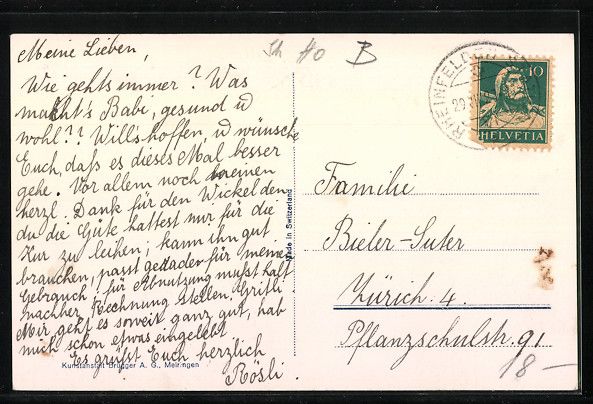 Meine Lieben,
Wie gehts immer? Was
macht's Babi, gesund u
wohl?? Will's hoffen, u wünsche
Euch, daß es dieses Mal besser
gehe. Vor allem noch einen
herzl. Dank für den Wickel den
du die Güte hattest mir für die
Kur zu leihen; kann ihn gut
brauchen, passt gerade für meinen
Gebrauch, für Abnutzung mußt halt
nachher Rechnung stellen. Gritli
Mir geht es soweit ganz gut, hab
mich schon etwas eingelebt
Es grüßt Euch herzlich
Rösli.
Kunstanstalt Brügger A. G., Meiringen
Made in Switzerland
#0 B
RHEINFELDEN
10
HELVETIA
Familie
Bieler-Suter
Zürich. 4.
Pflanzschulstr. 91
18 –